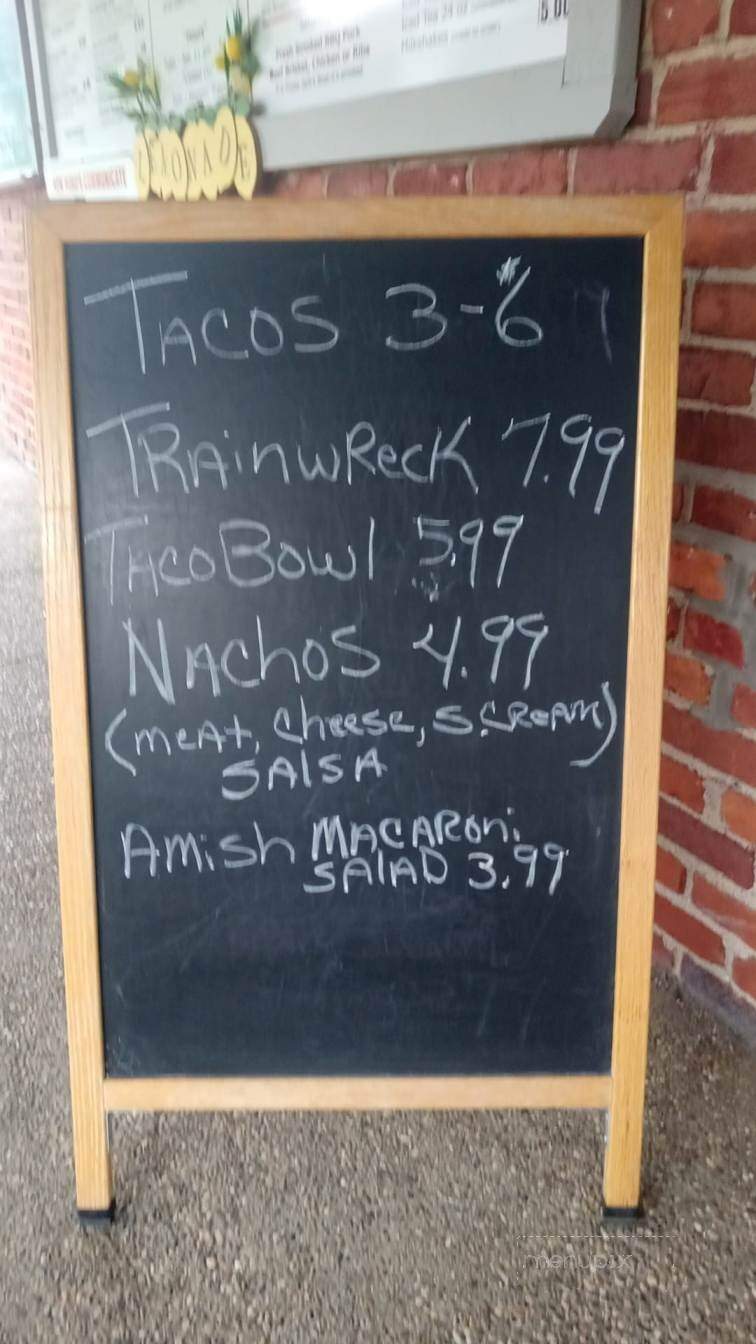 Iced Tea 24 oz
5.00
Fresh Smoked BBQ Pork
Beef Brisket, Chicken or Ribs
LEMONADE
TACOS 3-$6
TRAinwRecK 7.99
TACO Bowl 5.99
NAChoS 4.99
(meAt, Cheese, S.CReAM)
SAlSA
AMiSh MACARoni
SAlAD 3.99
menupix